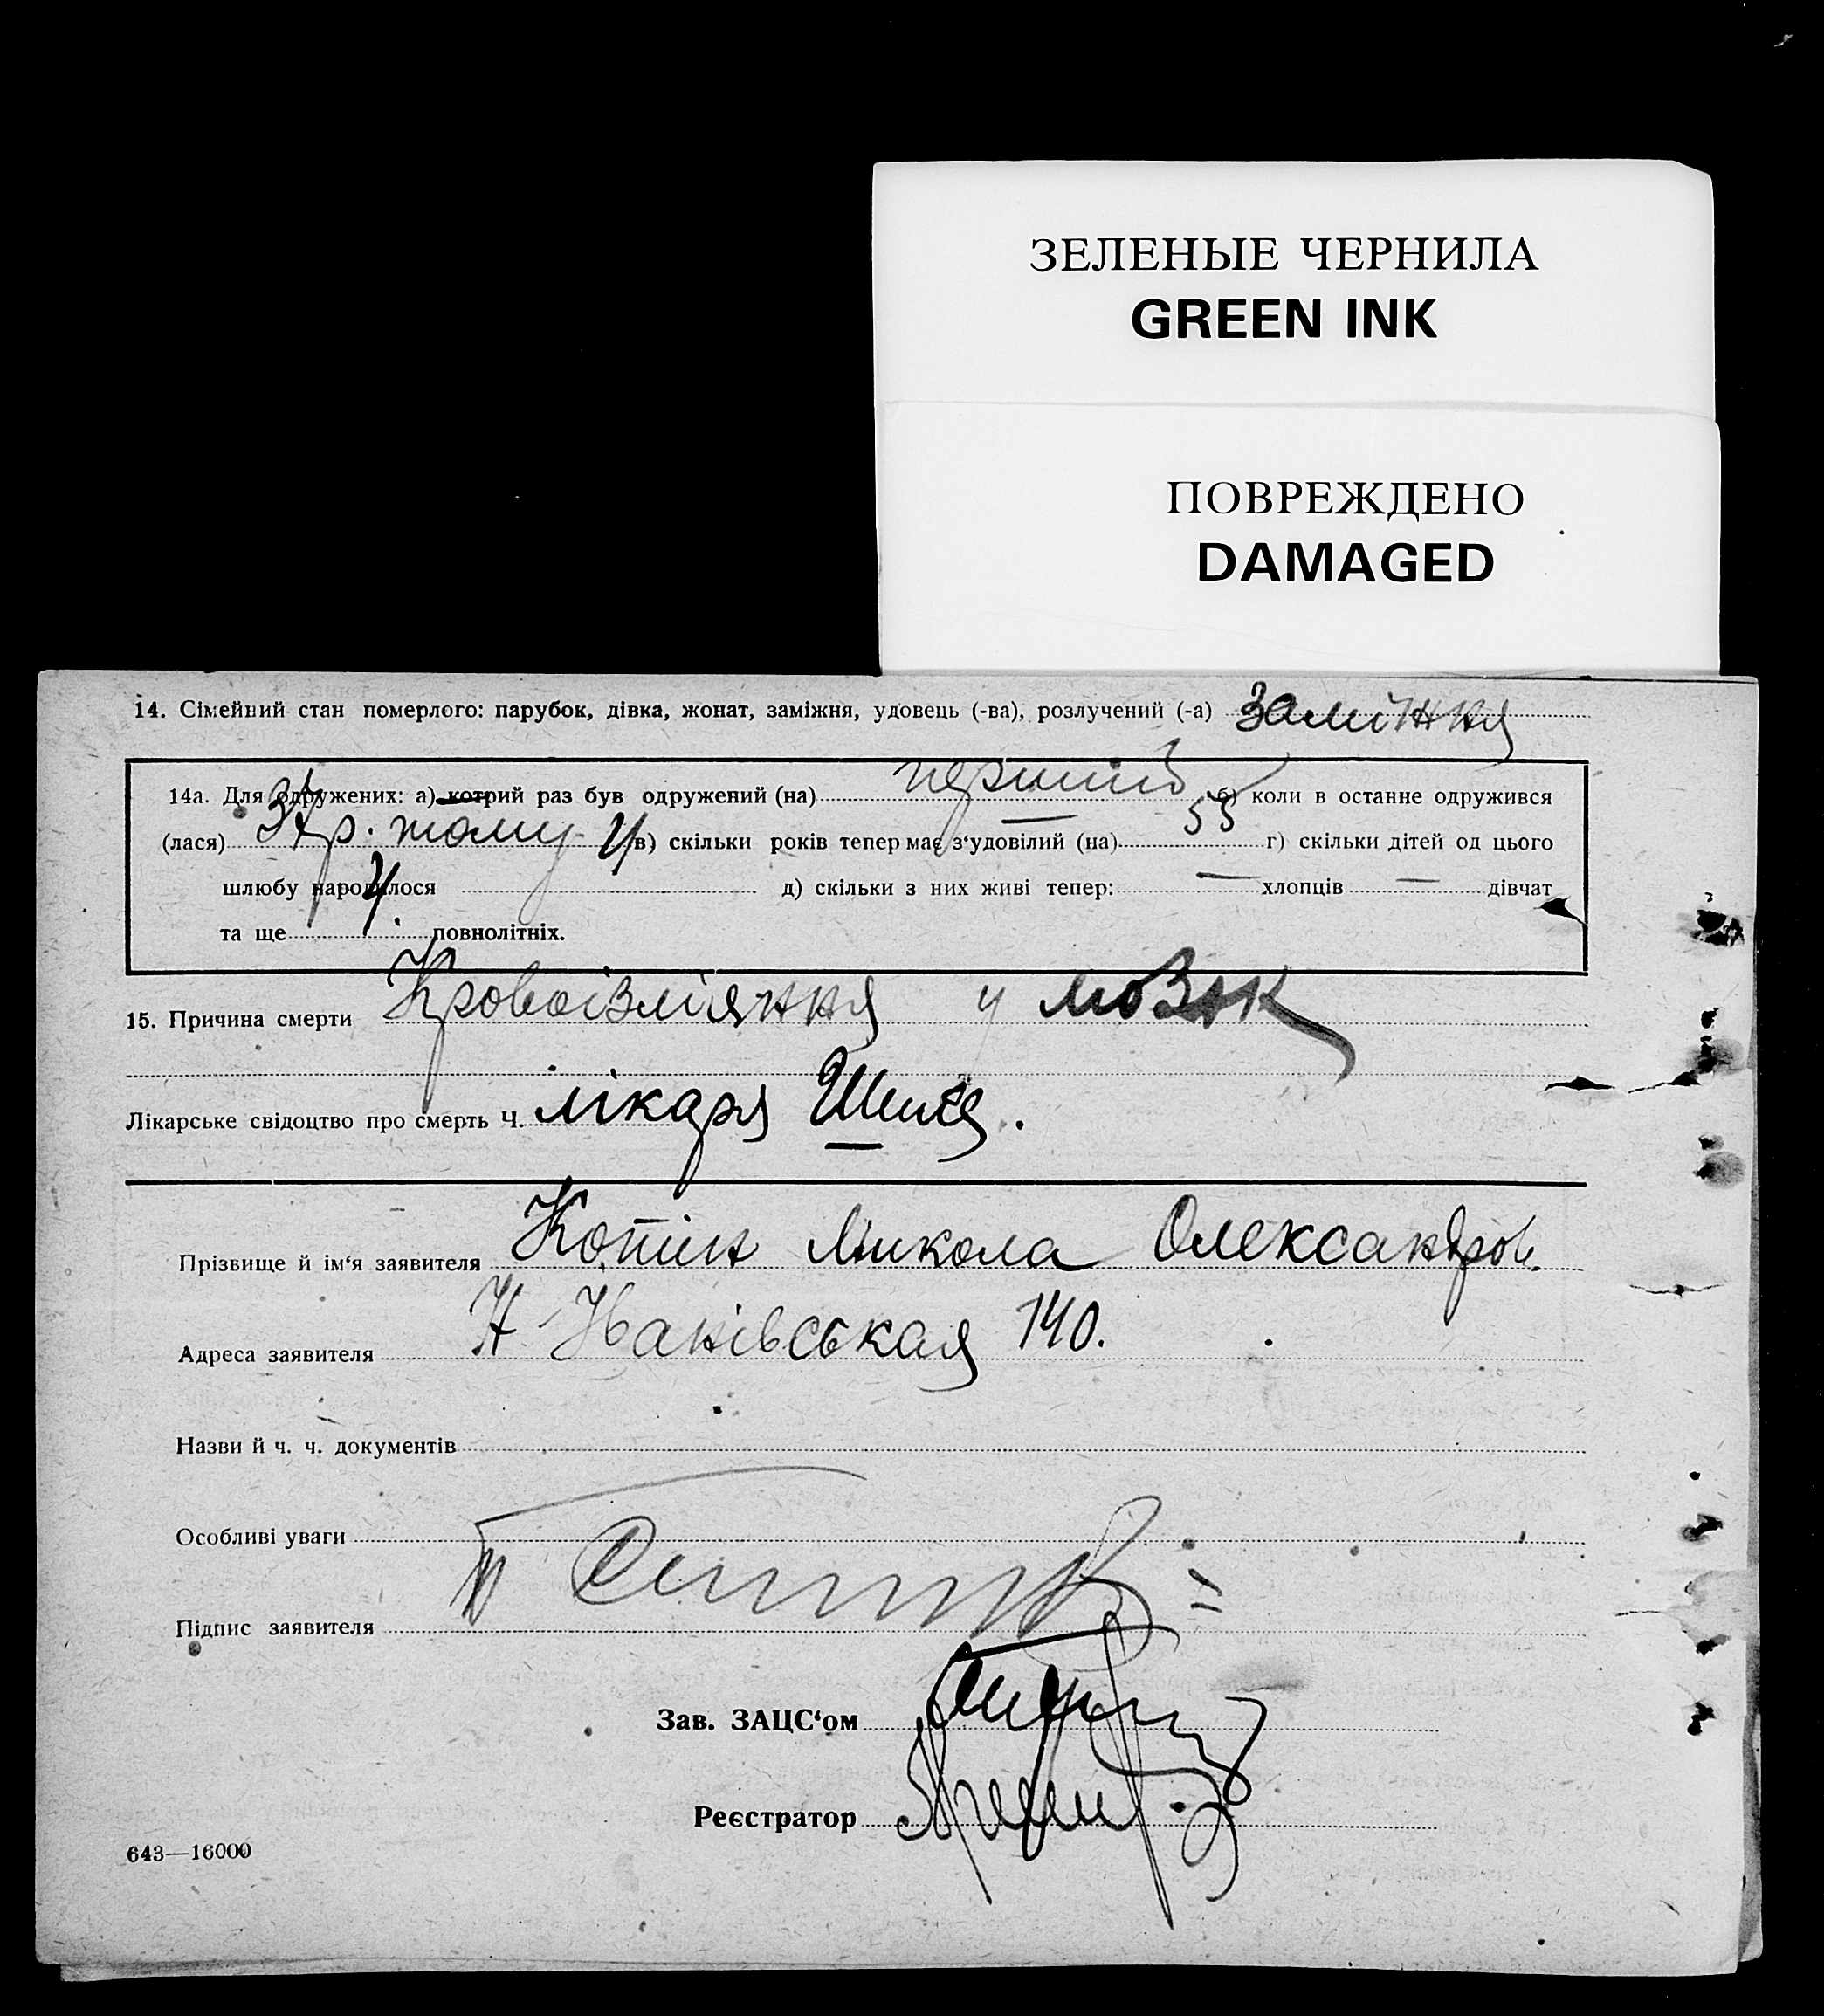 ЗЕЛЕНЫЕ ЧЕРНИЛА
GREEN INK
ПОВРЕЖДЕНО
DAMAGED
14. Сімейний стан померлого: парубок, дівка, жонат, заміжня, удовець (-ва), розлучений (-а) заміжня
14а. Для одружених: а) котрий раз був одружений (на) перший б) коли в останне одружився
(лася) р. тому в) скільки років тепер має з‘удовілий (на) 55 г) скільки дітей од цього
шлюбу народилося 4 д) скільки з них живі тепер: — хлопців — дівчат
та ще 4. повнолітніх.
15. Причина смерти Кровоізліяння у мозок
Лікарське свідоцтво про смерть Ч. лікаря
Прізвище й ім‘я заявителя Котін Микола Олександров.
Адреса заявителя Н Іванівськая 140.
Назви й ч. ч. документів
Особливі уваги
Підпис заявителя
Зав. ЗАЦС‘ом
Реєстратор
643—16000